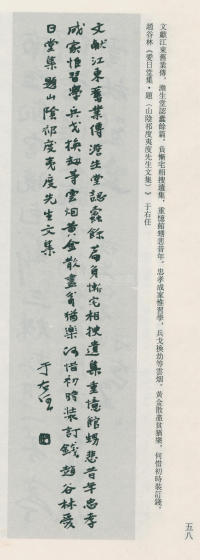 文獻江東舊業傳，澹生堂認蠹餘篇。負慚宅相搜遺集，重憶館甥悲昔年。忠孝成家惟習學，兵戈換劫等雲烟。黃金散盡貧猶樂，何惜初時裝訂錢。
趙谷林《愛日堂集·題〈山陰祁度夷度先生文集〉》 于右任
文獻江東舊業傳澹生堂認蠹餘篇負慚宅相搜遺集重憶館甥悲昔年忠孝
成家惟習學兵戈換劫等雲烟黃金散盡貧猶樂何惜初時裝訂錢趙谷林愛
日堂集題山陰祁度夷度先生文集
于右任
五八